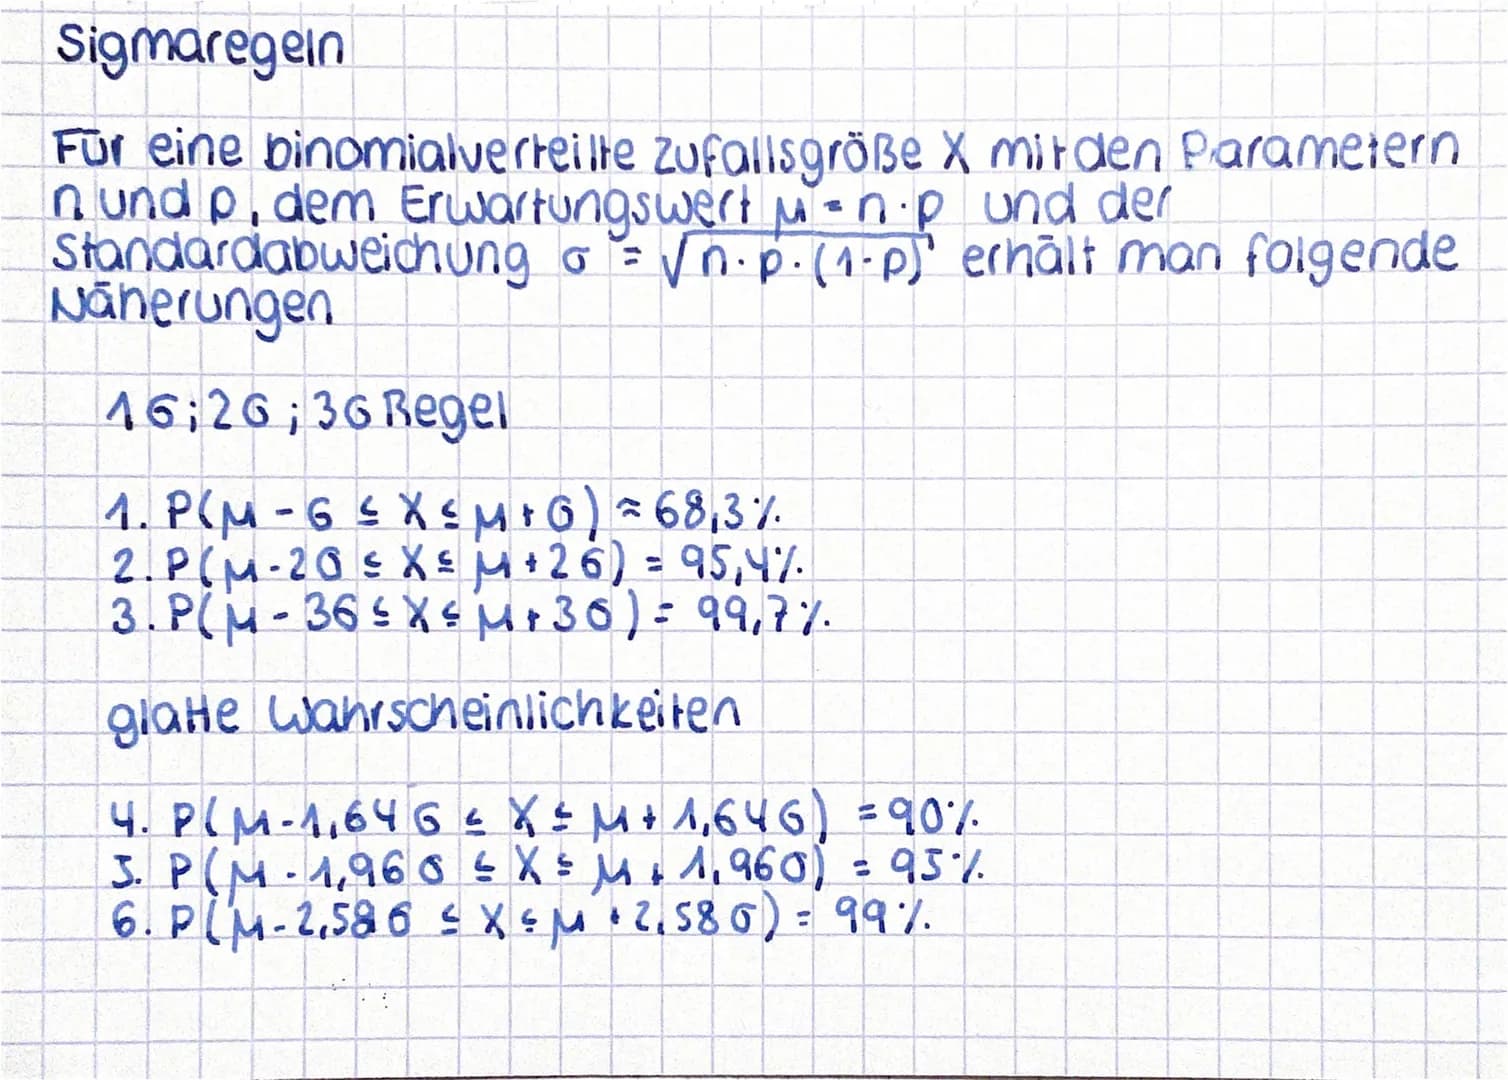 Sigmaregeln
Für eine binomialverteilte Zufallsgröße X mit den Parametern
n und p, dem Erwartungswert μ = n·p und der
Standardabweichung σ = √n·p·(1-p) erhält man folgende
Näherungen
1σ; 2σ; 3σ Regel
1. P(μ - σ ≤ X ≤ μ + σ) ≈ 68,3%
2. P(μ - 2σ ≤ X ≤ μ + 2σ) = 95,4%
3. P(μ - 3σ ≤ X ≤ μ + 3σ) = 99,7%
glatte Wahrscheinlichkeiten
4. P(μ - 1,64σ ≤ X ≤ μ + 1,64σ) = 90%
5. P(μ - 1,96σ ≤ X ≤ μ + 1,96σ) = 95%
6. P(μ - 2,58σ ≤ X ≤ μ + 2,58σ) = 99%